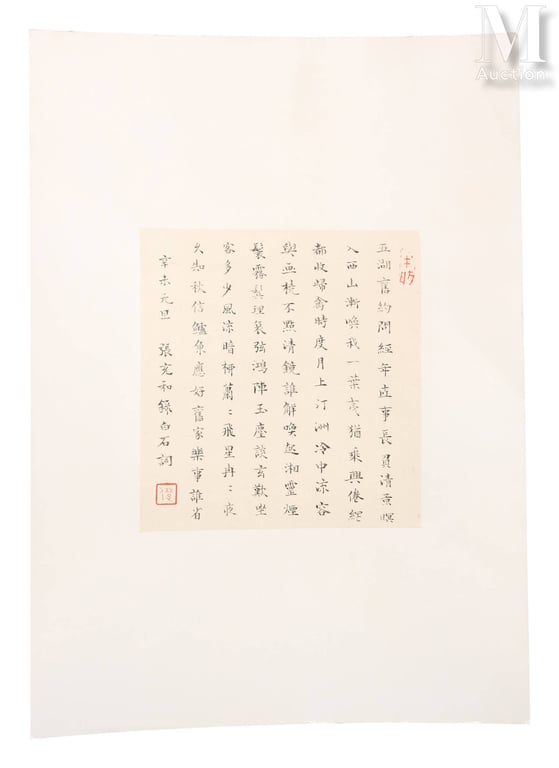 M
Auction
五湖舊約問經年底事長負清景暝
入西山漸喚我一葉夷猶乘興倦網
都收歸禽時度月上汀洲冷中流容
與画橈不點清鏡誰解喚起湘靈煙
鬟霧鬢理哀弦鴻陣玉麈談玄歎坐
客多少風流暗柳蕭〻飛星冉〻夜
久知秋信鱸魚應好舊家樂事誰省
辛未元旦 張充和錄白石詞